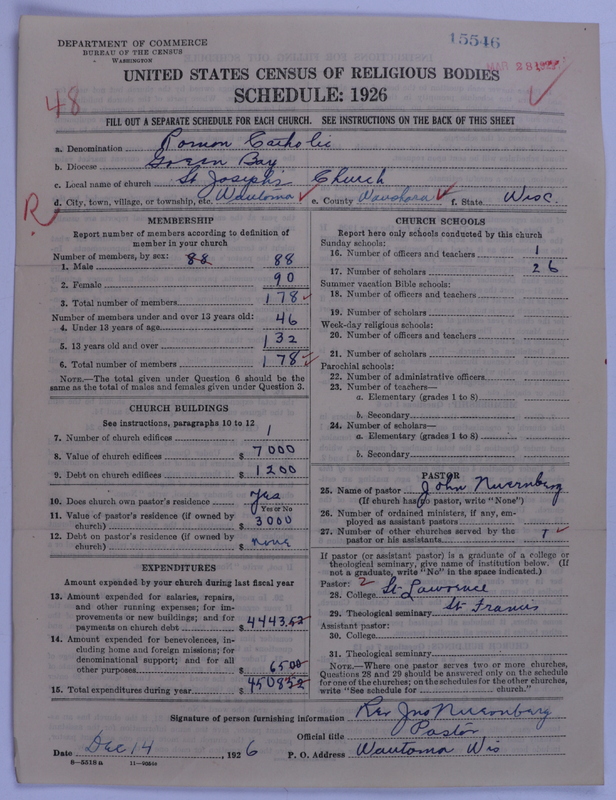 DEPARTMENT OF COMMERCE
BUREAU OF THE CENSUS
WASHINGTON
15546
MAR 28 1927
UNITED STATES CENSUS OF RELIGIOUS BODIES
SCHEDULE: 1926
48
FILL OUT A SEPARATE SCHEDULE FOR EACH CHURCH. SEE INSTRUCTIONS ON THE BACK OF THIS SHEET
a. Denomination Roman Catholic
b. Diocese Green Bay
c. Local name of church St Josephs Church
d. City, town, village, or township, etc. Wautoma e. County Waushara f. State Wisc.
R
MEMBERSHIP
Report number of members according to definition of
member in your church
Number of members, by sex:
1. Male 88 88
2. Female 90
3. Total number of members 178
Number of members under and over 13 years old:
4. Under 13 years of age 46
5. 13 years old and over 132
6. Total number of members 178
NOTE.—The total given under Question 6 should be the
same as the total of males and females given under Question 3.
CHURCH BUILDINGS
See instructions, paragraphs 10 to 12
7. Number of church edifices 1
8. Value of church edifices $ 7000
9. Debt on church edifices $ 1200
10. Does church own pastor's residence yes
Yes or No
11. Value of pastor's residence (if owned by
church) $ 3000
12. Debt on pastor's residence (if owned by
church) $ none
EXPENDITURES
Amount expended by your church during last fiscal year
13. Amount expended for salaries, repairs,
and other running expenses; for im-
provements or new buildings; and for
payments on church debt $ 4443.52
14. Amount expended for benevolences, in-
cluding home and foreign missions; for
denominational support; and for all
other purposes $ 6500
15. Total expenditures during year $ 450852
CHURCH SCHOOLS
Report here only schools conducted by this church
Sunday schools:
16. Number of officers and teachers 1
17. Number of scholars 26
Summer vacation Bible schools:
18. Number of officers and teachers
19. Number of scholars
Week-day religious schools:
20. Number of officers and teachers
21. Number of scholars
Parochial schools:
22. Number of administrative officers
23. Number of teachers—
a. Elementary (grades 1 to 8)
b. Secondary
24. Number of scholars—
a. Elementary (grades 1 to 8)
b. Secondary
PASTOR
25. Name of pastor John Nuernberg
(If church has no pastor, write "None")
26. Number of ordained ministers, if any, em-
ployed as assistant pastors
27. Number of other churches served by the
pastor or his assistants 1
If pastor (or assistant pastor) is a graduate of a college or
theological seminary, give name of institution below. (If
not a graduate, write "No" in the space indicated.)
Pastor: 2
28. College St Lawrence
29. Theological seminary St Francis
Assistant pastor:
30. College
31. Theological seminary
NOTE.—Where one pastor serves two or more churches,
Questions 28 and 29 should be answered only on the schedule
for one of the churches; on the schedules for the other churches,
write "See schedule for church."
Signature of person furnishing information Rev Jno Nuernberg
Official title Pastor
Date Dec 14, 1926 P. O. Address Wautoma Wis
8—5518 a